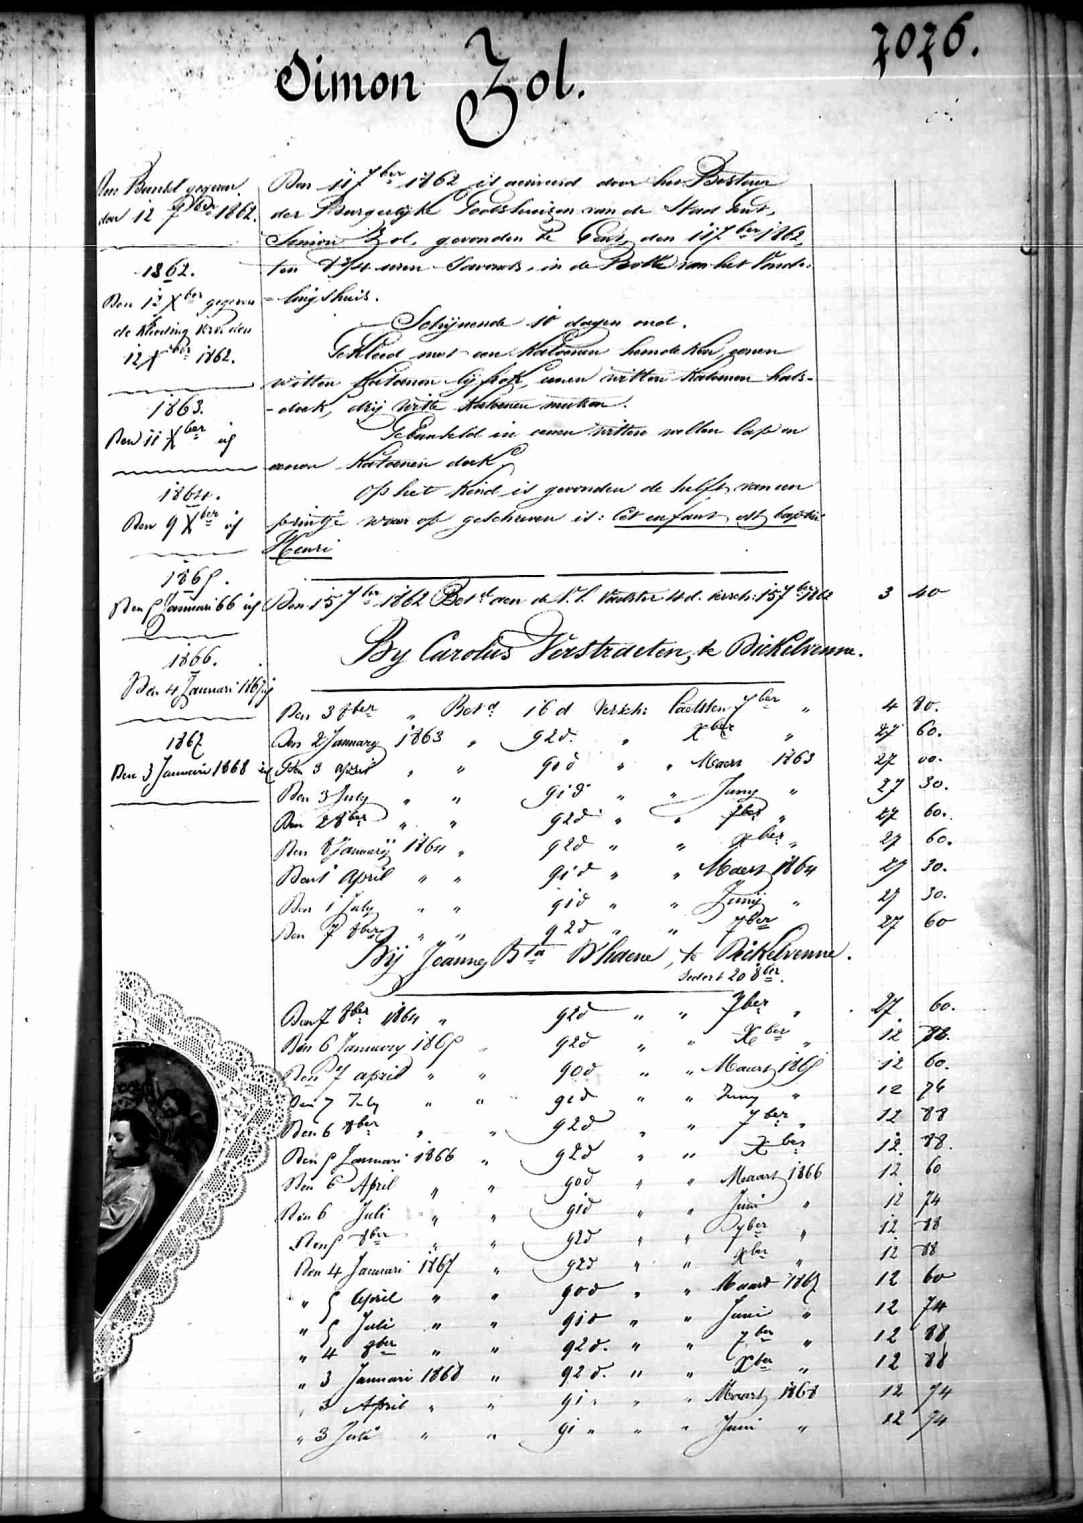 7076.
Simon Zol.
Den Bundel gegeven
den 12 7ber 1862.
1862.
Den 12 Xber gegeven
de kleeding tot den
12 Xber 1862.
1863.
Den 11 Xber id
1864.
Den 9 Xber id
1865.
Den 5 Januari 66 id
1866.
Den 4 Januari 1867 id
1867
Den 3 Januari 1868 id
Den 11 7ber 1862 is aenveerd door het Bestuur
der Burgerlyke Godshuizen van de Stad Gent,
Simon Zol, gevonden te Gent, den 11 7ber 1862,
ten 8 3/4 uren Savonds, in de Rolle van het Vonde-
-lingshuis.
Schijnende 10 dagen oud.
Gekleed met een Katoenen hemdeken, eenen
witten Katoenen lijfrok, eenen witten Katoenen hals-
-doek, drij witte Katoenen mutsen.
Gebunseld in eenen witten wollen lap en
eenen Katoenen doek.
Op het Kind is gevonden de helft van een
printje waer op geschreven is: Cet enfant est baptisé
Henri
Den 15 7ber 1862 Betd aen de N.1. Voedster 4 d. versch: 15 7ber 1862 3 40
By Carolus Verstraeten, te Dickelvenne.
Den 3 8ber „ Betd 16 d Versch: Laetsten 7ber „ 4 80.
Den 2 January 1863 „ 92 d. „ Xber „ 27 60.
Den 3 April „ „ 90 d „ „ Maert 1863 27 00.
Den 3 July „ „ 91 d „ „ Juny „ 27 30.
Den 2 8ber „ „ 92 d „ „ 7ber „ 27 60.
Den 8 Januarij 1864 „ 92 d „ „ Xber „ 27 60.
Den 1 April „ „ 91 d „ „ Maert 1864 27 30.
Den 1 July „ „ 91 d „ „ Junij „ 27 30.
Den 7 8ber „ „ 92 d „ „ 7ber 27 60
Bij Joannes Bta D'haene, te Dickelvenne.
Sedert 20 8ber.
Den 7 8ber 1864 „ 92 d „ „ 7ber „ 27 60.
Den 6 January 1865 „ 92 d „ „ Xber „ 12 88.
Den 7 april „ „ 90 d „ „ Maart 1865 12 60.
Den 7 July „ „ 91 d „ „ Juny „ 12 74
Den 6 8ber „ „ 92 d „ „ 7ber „ 12 88
Den 5 Januari 1866 „ 92 d „ „ Xber 12. 88.
Den 6 April „ „ 90 d „ „ Maart 1866 12 60
Den 6 Juli „ „ 91 d „ „ Juni „ 12 74
Den 5 8ber „ „ 92 d „ „ 7ber „ 12 88
Den 4 Januari 1867 „ 92 d „ „ Xber „ 12 88
„ 5 April „ „ 90 d „ „ Maart 1867 12 60
„ 5 Juli „ „ 91 d „ „ Juni „ 12 74
„ 4 8ber „ „ 92 d. „ „ 7ber „ 12 88
„ 3 Januari 1868 „ 92 d. „ „ Xber „ 12 88
„ 3 April „ „ 91 „ „ „ Maart 1868 12 74
„ 3 Juli „ „ 91 „ „ „ Juni „ 12 74